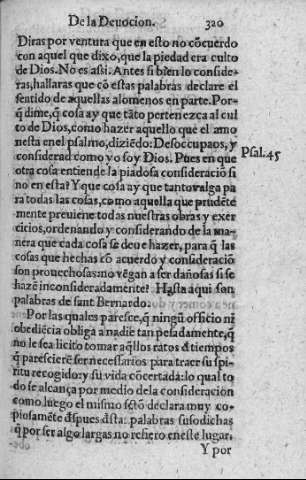 De la Deuocion. 320
Diras por ventura que en esto no cõcuerdo
con aquel que dixo, que la piedad era culto
de Dios. No es assi. Antes si bien lo conside-
ras, hallaras que cõ estas palabras declare el
sentido de aquellas alomenos en parte. Por-
q̃ dime, q̃ cosa ay que tãto pertenezca al cul
to de Dios, como hazer aquello que el amo
nesta en el psalmo, diziẽdo: Desoccupaos, y
considerad como yo soy Dios. Pues en que
Psal. 45
otra cosa entiende la piadosa consideraciõ si
no en esta? Y que cosa ay que tanto valga pa
ra todas las cosas, como aquella que prudẽte
mente preuiene todas nuestras obras y exer
cicios, ordenando y considerando de la ma-
nera que cada cosa se deue hazer, para q̃ las
cosas que hechas cõ acuerdo y consideraciõ
son prouechosas: no vẽgan a ser dañosas si se
hazẽ inconsideradamente? Hasta aqui son
palabras de sant Bernardo.
Por las quales paresce, q̃ ningũ officio ni
obediẽcia obliga a nadie tan pesadamente, q̃
no le sea licito tomar aq̃llos ratos d̃ tiempos
q̃ parescierẽ ser necessarios para traer su spi-
ritu recogido: y su vida cõcertada: lo qual to
do se alcança por medio dela consideracion
como luego el mismo sctõ declara muy co-
piosamẽte d̃spues d̃sta: palabras susodichas
q̃ por ser algo largas no refiero en este lugar.
Y por